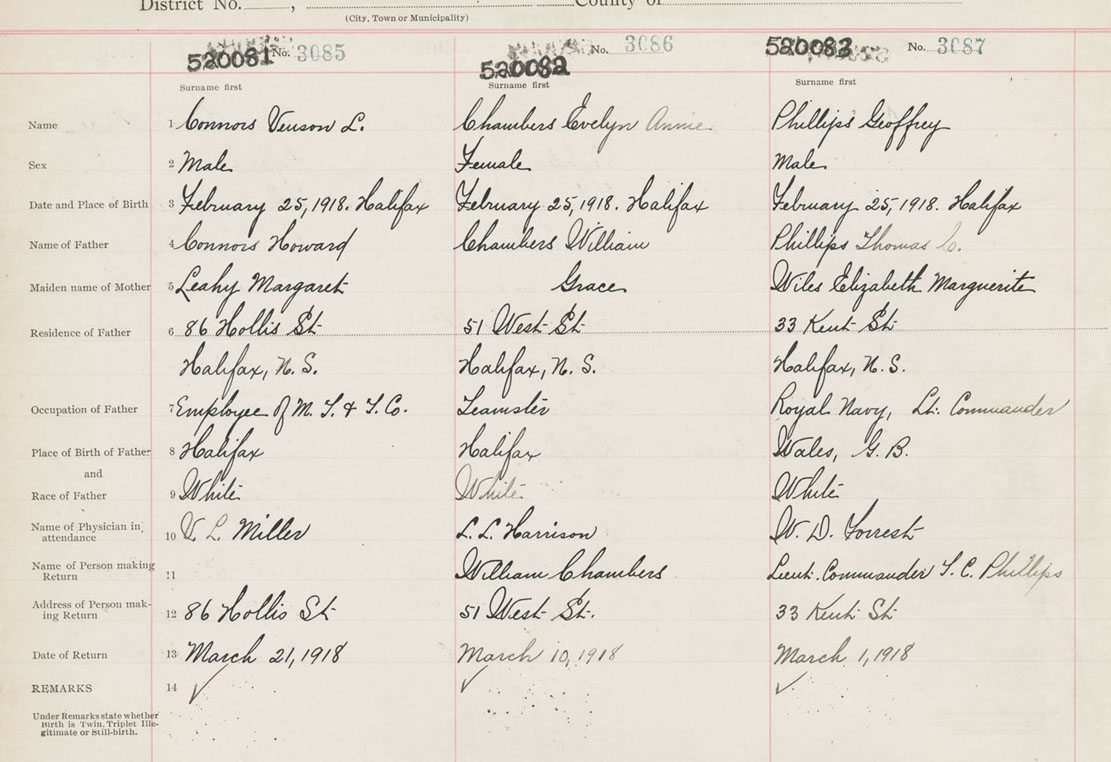 District No. , County of
(City, Town or Municipality)
520081 No. 3085 520082 No. 3086 520083 No. 3087
Surname first Surname first Surname first
Name 1 Connors Venson L. Chambers Evelyn Annie Phillips Geoffrey
Sex 2 Male Female Male
Date and Place of Birth 3 February 25, 1918. Halifax February 25, 1918. Halifax February 25, 1918. Halifax
Name of Father 4 Connors Howard Chambers William Phillips Thomas C.
Maiden name of Mother 5 Leahy Margaret Grace Wiles Elizabeth Marguerite
Residence of Father 6 86 Hollis St 51 West St 33 Kent St
Halifax, N. S. Halifax, N. S. Halifax, N. S.
Occupation of Father 7 Employee of M. T. & T. Co. Teamster Royal Navy, Lt. Commander
Place of Birth of Father 8 Halifax Halifax Wales, G. B.
and
Race of Father 9 White White White
Name of Physician in attendance 10 V. L. Miller L. L. Harrison W. D. Forrest
Name of Person making Return 11 William Chambers Lieut. Commander T. C. Phillips
Address of Person mak-ing Return 12 86 Hollis St 51 West St. 33 Kent St
Date of Return 13 March 21, 1918 March 10, 1918 March 1, 1918
REMARKS 14
Under Remarks state whether
Birth is Twin, Triplet Ille-
gitimate or Still-birth.